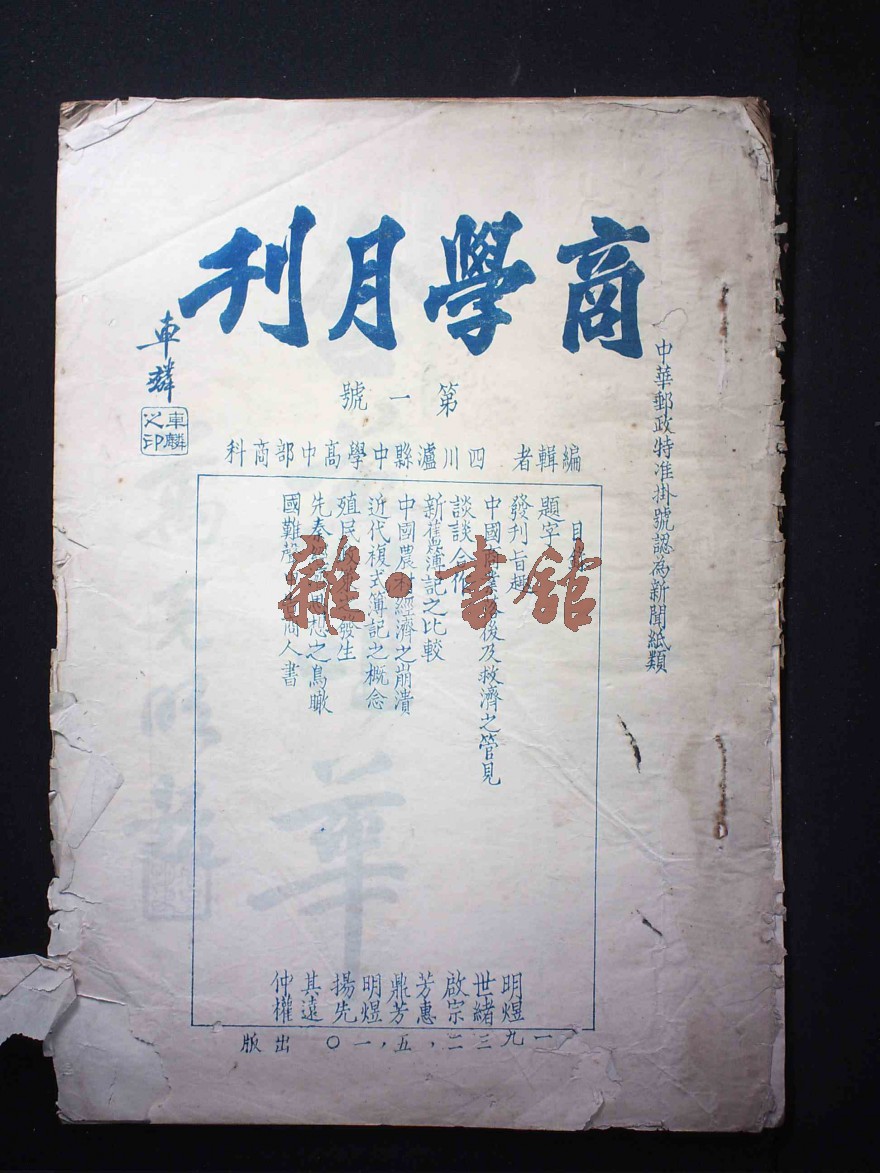 商學月刊
車麟
車麟之印
第一號
中華郵政特准掛號認為新聞紙類
編輯者 四川瀘縣中學高中部商科
目
題字
發刊旨趣 明煜
中國 後及救濟之管見 世緒
談談合作 啟宗
新舊簿記之比較 芳惠
中國農村經濟之崩潰 鼎芳
近代複式簿記之概念 明煜
殖民 發生 揚先
先秦 思想之鳥瞰 其遠
國難聲 商人書 仲權
一九三二，五，一〇 出版
雜·書館
華